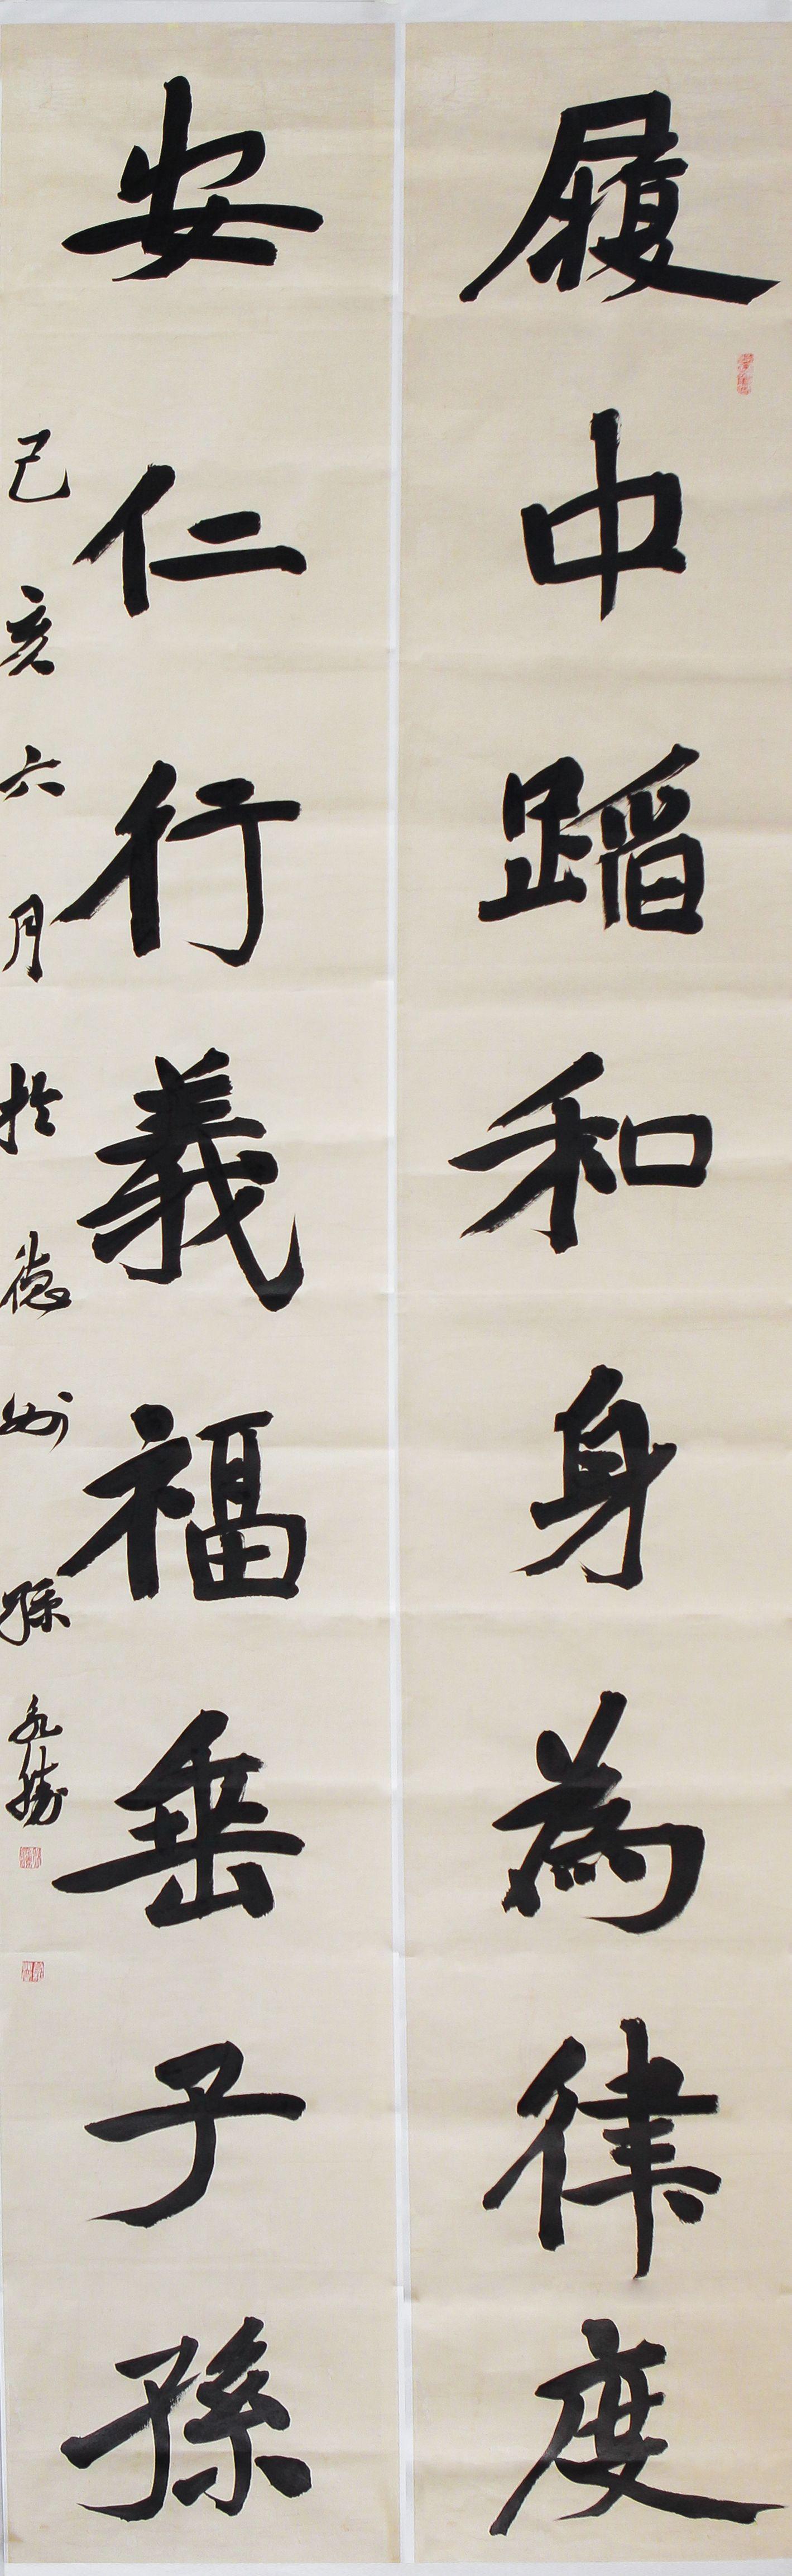 履中蹈和身為律度
安仁行義福垂子孫
己亥六月於德州孫永勝